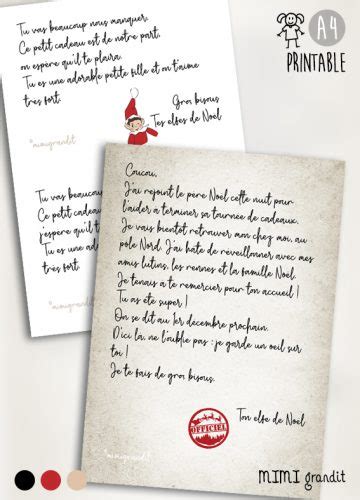 Tu vas beaucoup nous manquer.
Ce petit cadeau est de notre part,
on espère qu'il te plaira.
Tu es une adorable petite fille et on t'aime
très fort.
Gros bisous
Tes elfes de Noël
*mimigrandit
A4
PRINTABLE
Tu vas beaucoup
Ce petit cadeau es
j'espère qu'il t
Tu es une ado
très fort.
*mimigrandit
Coucou,
J'ai rejoint le père Noël cette nuit pour
l'aider à terminer sa tournée de cadeaux.
Je vais bientôt retrouver mon chez moi, au
pôle Nord. J'ai hâte de réveillonner avec mes
amis lutins, les rennes et la famille Noël.
Je tenais à te remercier pour ton accueil !
Tu as été super !
On se dit au 1er décembre prochain.
D'ici là, ne l'oublie pas : je garde un oeil sur
toi !
Je te fais de gros bisous.
Ton elfe de Noël
OFFICIEL
*mimigrandit
MIMI grandit